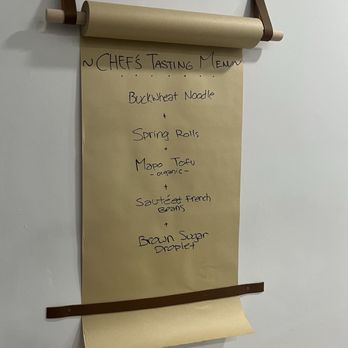 ~ CHEF'S TASTING MENU ~
Buckwheat Noodle
+
Spring Rolls
+
Mapo Tofu
- organic -
+
Sautéed French
Beans
+
Brown Sugar
Droplet